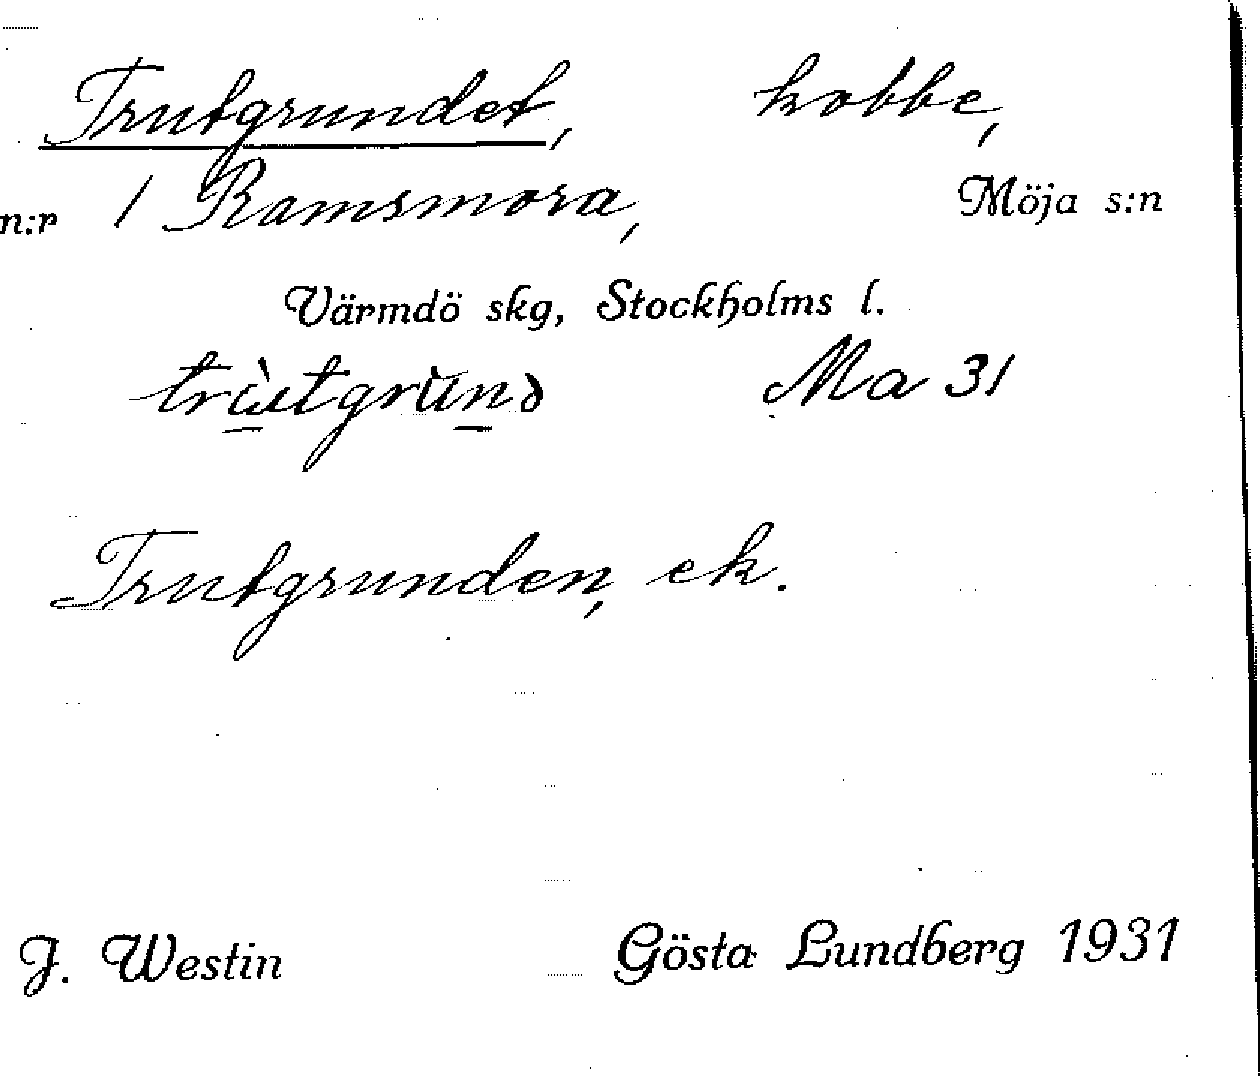 Trutgrundet, kobbe,
n:r 1 Ramsmora, Möja s:n
Värmdö skg, Stockholms l.
Ma 31
Trutgrunden, ek.
J. Westin Gösta Lundberg 1931